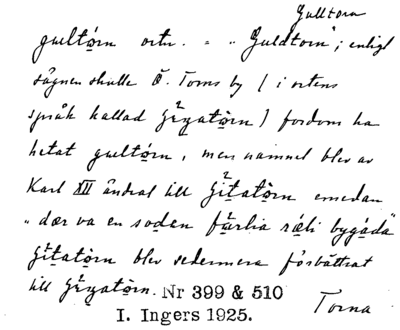 Gulltorn
gultòrn ortn. = "Guldtorn"; enligt
sägnen skulle Ö. Torns by (i ortens
språk kallad Gèyatòrn) fordom ha
hetat gultòrn, men namnet blev av
Karl XII ändrat till Gìtatòrn emedan
"dær va en sodan fàrlia ræli bygáda"
Gìtatòrn blev sedermera förbättrat
till Gèyatòrn. Nr 399 & 510
I. Ingers 1925. Torna